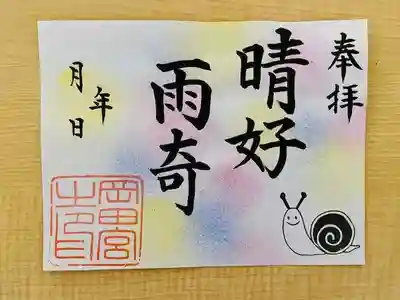 奉拝
晴好
雨奇
年
月日
岡田宮
之印